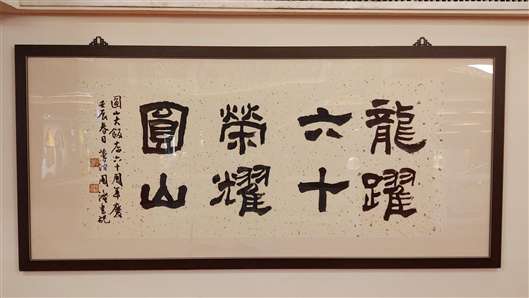 龍躍
六十
榮耀
圓山
圓山大飯店六十周年慶
壬辰春日 周澄書祝